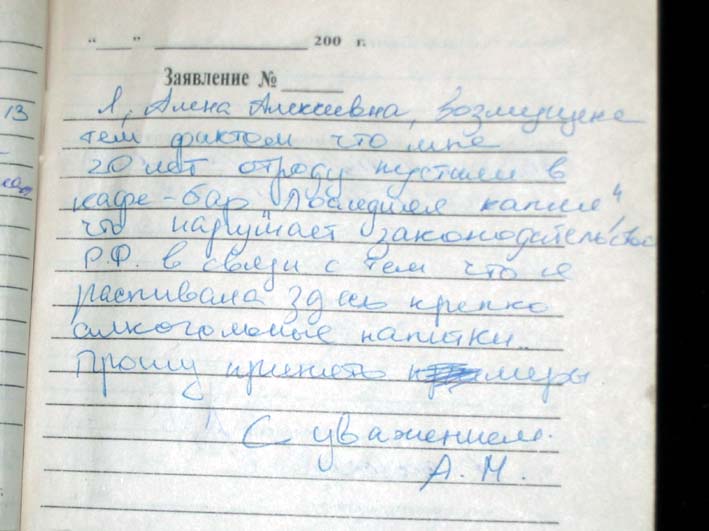 "___" ____________ 200 г.
Заявление №______
Я, Алена Алексеевна, возмущена
тем фактом что мне
20 лет отроду пустили в
кафе-бар "Последняя капля"
что нарушает законодательство
Р.Ф. в связи с тем что я
распивала здесь крепко
алкогольные напитки..
Прошу принять меры.
С уважением.
А. М.
13